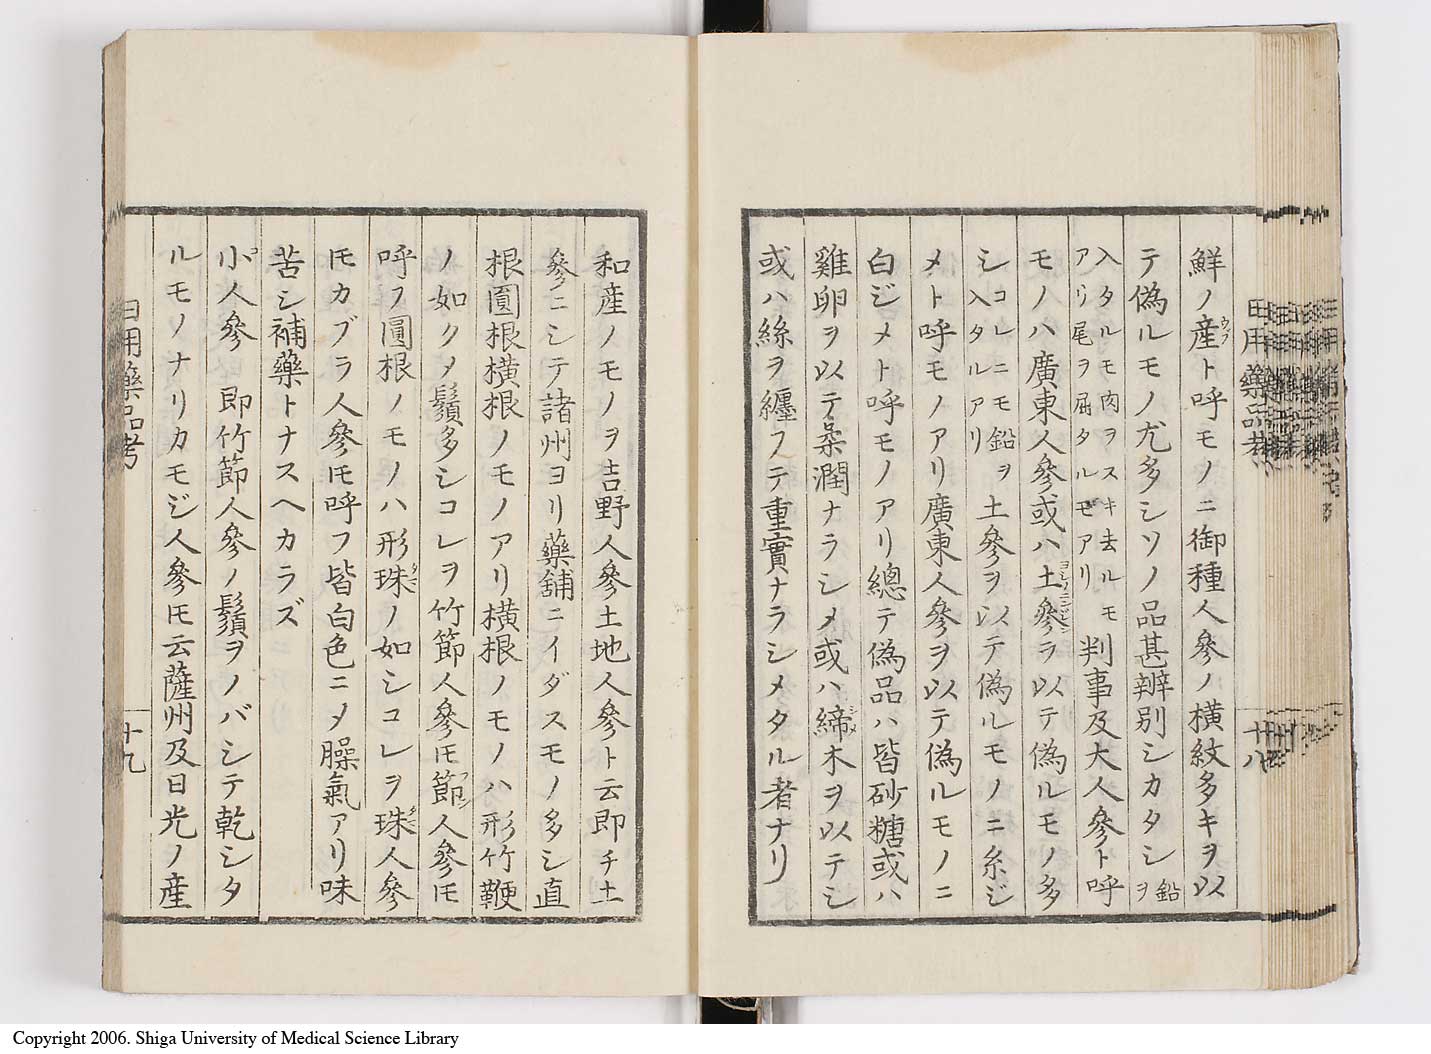 鮮ノ産ト呼モノニ御種人參ノ横紋多キヲ以
テ偽ルモノ尤多シソノ品甚辨別シカタシ鉛ヲ
入タルモ肉ヲスキ去ルモ
アリ尾ヲ屈タルモアリ判事及大人參ト呼
モノハ廣東人參或ハ土參ヲ以テ偽ルモノ多
シコレニモ鉛ヲ
入タルアリ土參ヲ以テ偽ルモノニ糸ジ
メト呼モノアリ廣東人參ヲ以テ偽ルモノニ
白ジメト呼モノアリ總テ偽品ハ皆砂糖或ハ
雞卵ヲ以テ柔潤ナラシメ或ハ締木ヲ以テシ
或ハ絲ヲ纏フテ重實ナラシメタル者ナリ
日用藥品考
十八
和産ノモノヲ吉野人參土地人參ト云即チ土
參ニシテ諸州ヨリ藥舗ニイダスモノ多シ直
根圓根横根ノモノアリ横根ノモノハ形竹鞭
ノ如クメ鬚多シコレヲ竹節人參モ節人參モ
呼フ圓根ノモノハ形珠ノ如シコレヲ珠人參
モカブラ人參モ呼フ皆白色ニメ臊氣アリ味
苦シ補藥トナスヘカラズ
小人參 即竹節人參ノ鬚ヲノバシテ乾シタ
ルモノナリカモジ人參モ云薩州及日光ノ産
日用藥品考
十九
Copyright 2006. Shiga University of Medical Science Library